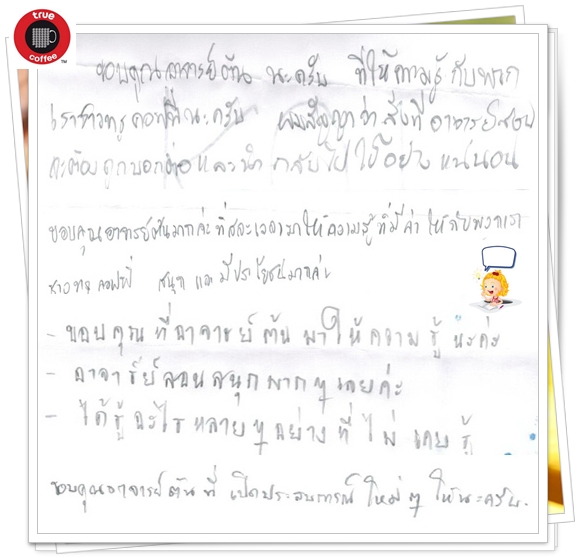 true
coffee
TM
ขอบคุณอาจารย์ต้น นะครับ ที่ให้ความรู้ กับพวก
เราชาวทรูคอฟฟี่นะครับ ผมสัญญาว่า สิ่งที่อาจารย์สอน
จะต้องถูกบอกต่อและนำ กลับไปใช้อย่าง แน่นอน
ขอบคุณอาจารย์ต้นมากค่ะที่สละเวลามาให้ความรู้ที่มีค่า ให้กับพวกเรา
ชาวทรู คอฟฟี่ สนุก และ มีประโยชน์มากค่ะ
- ขอบคุณที่อาจารย์ต้น มาให้ความรู้ นะค่ะ
- อาจารย์สอนสนุกมากๆ เลยค่ะ
- ได้รู้อะไรหลายๆ อย่างที่ไม่เคยรู้
ขอบคุณอาจารย์ต้นที่ เปิดประสบการณ์ ใหม่ๆ ให้นะครับ.